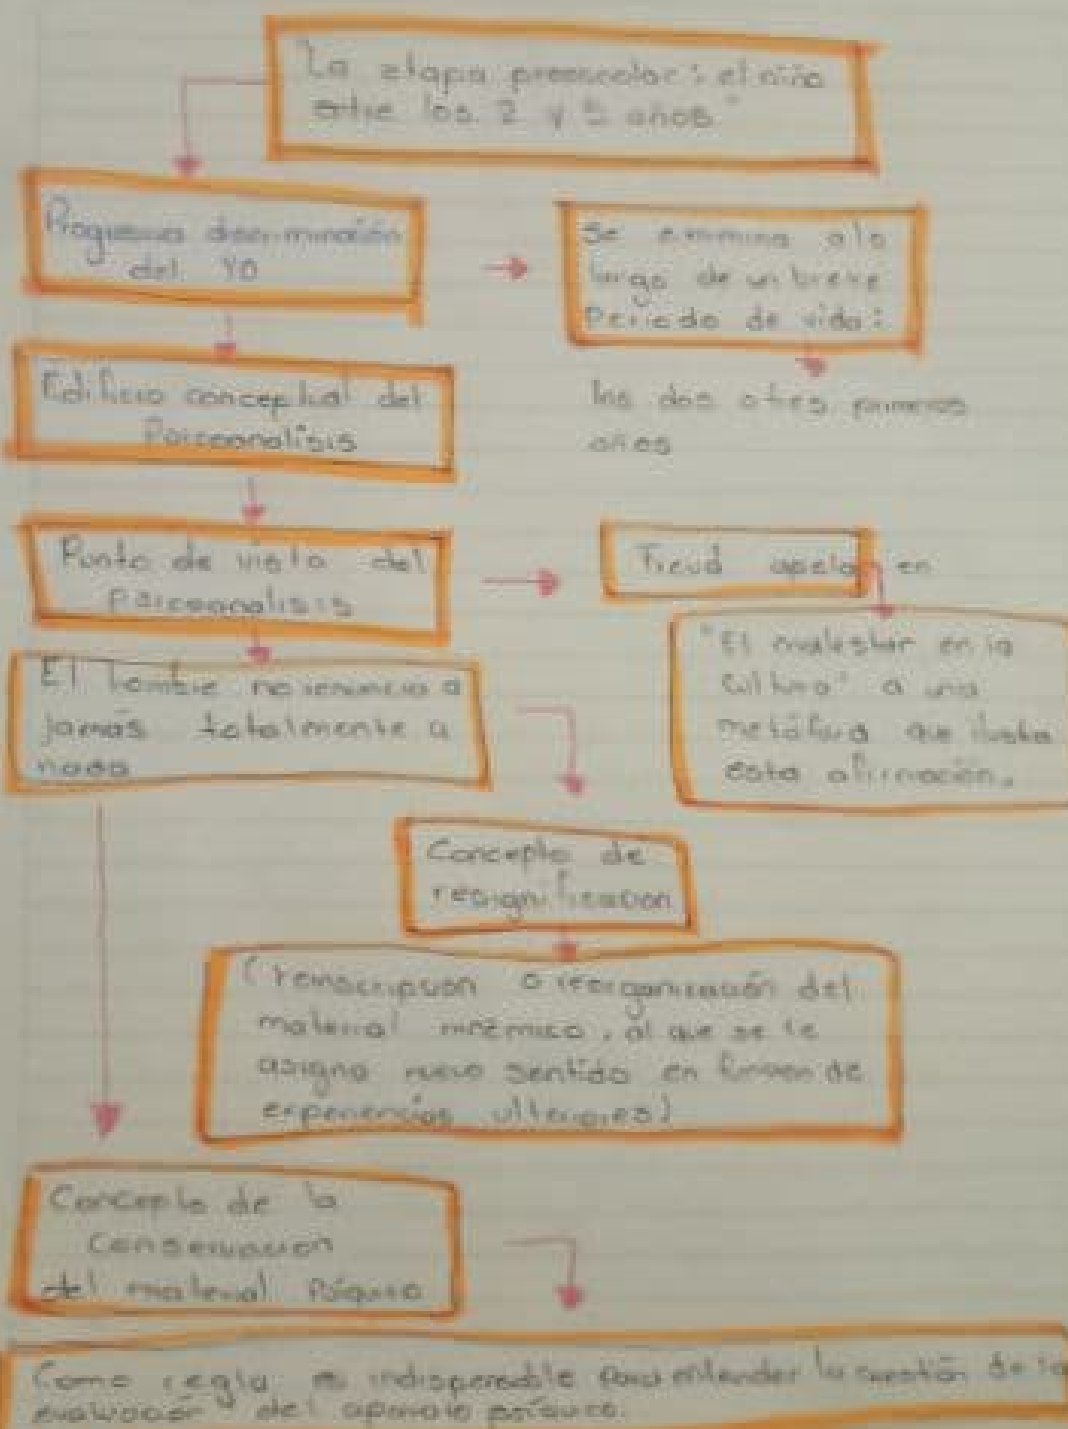 "La etapa preescolar: el niño
entre los 2 y 5 años"
Progresiva discriminación
del YO
Se examina a lo
largo de un breve
Periodo de vida:
los dos o tres primeros
años
Edificio conceptual del
Psicoanalisis
Punto de vista del
psicoanalisis
Freud apela en
"El malestar en la
Cultura" a una
metáfora que ilustra
esta afirmación.
El hombre no renuncia a
jamás totalmente a
nada
Concepto de
resignificacion
(reinscripción o reorganización del
material mnémico, al que se le
asigna nuevo sentido en función de
experiencias ulteriores)
Concepto de la
Conservacion
del material Psíquico
Como regla es indispensable para entender la cuestión de la
evaluación del aparato psíquico.